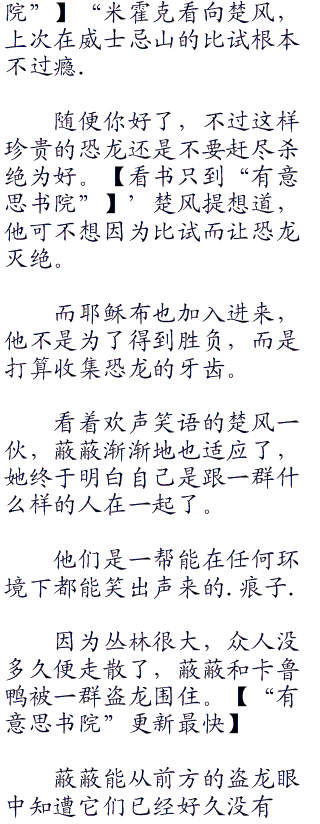 院”】“米霍克看向楚风，
上次在威士忌山的比试根本
不过瘾.
随便你好了，不过这样
珍贵的恐龙还是不要赶尽杀
绝为好。【看书只到“有意
思书院”】’楚风提想道，
他可不想因为比试而让恐龙
灭绝。
而耶稣布也加入进来，
他不是为了得到胜负，而是
打算收集恐龙的牙齿。
看着欢声笑语的楚风一
伙，蔽蔽渐渐地也适应了，
她终于明白自己是跟一群什
么样的人在一起了。
他们是一帮能在任何环
境下都能笑出声来的.痕子.
因为丛林很大，众人没
多久便走散了，蔽蔽和卡鲁
鸭被一群盗龙围住。【“有
意思书院”更新最快】
蔽蔽能从前方的盗龙眼
中知遭它们已经好久没有